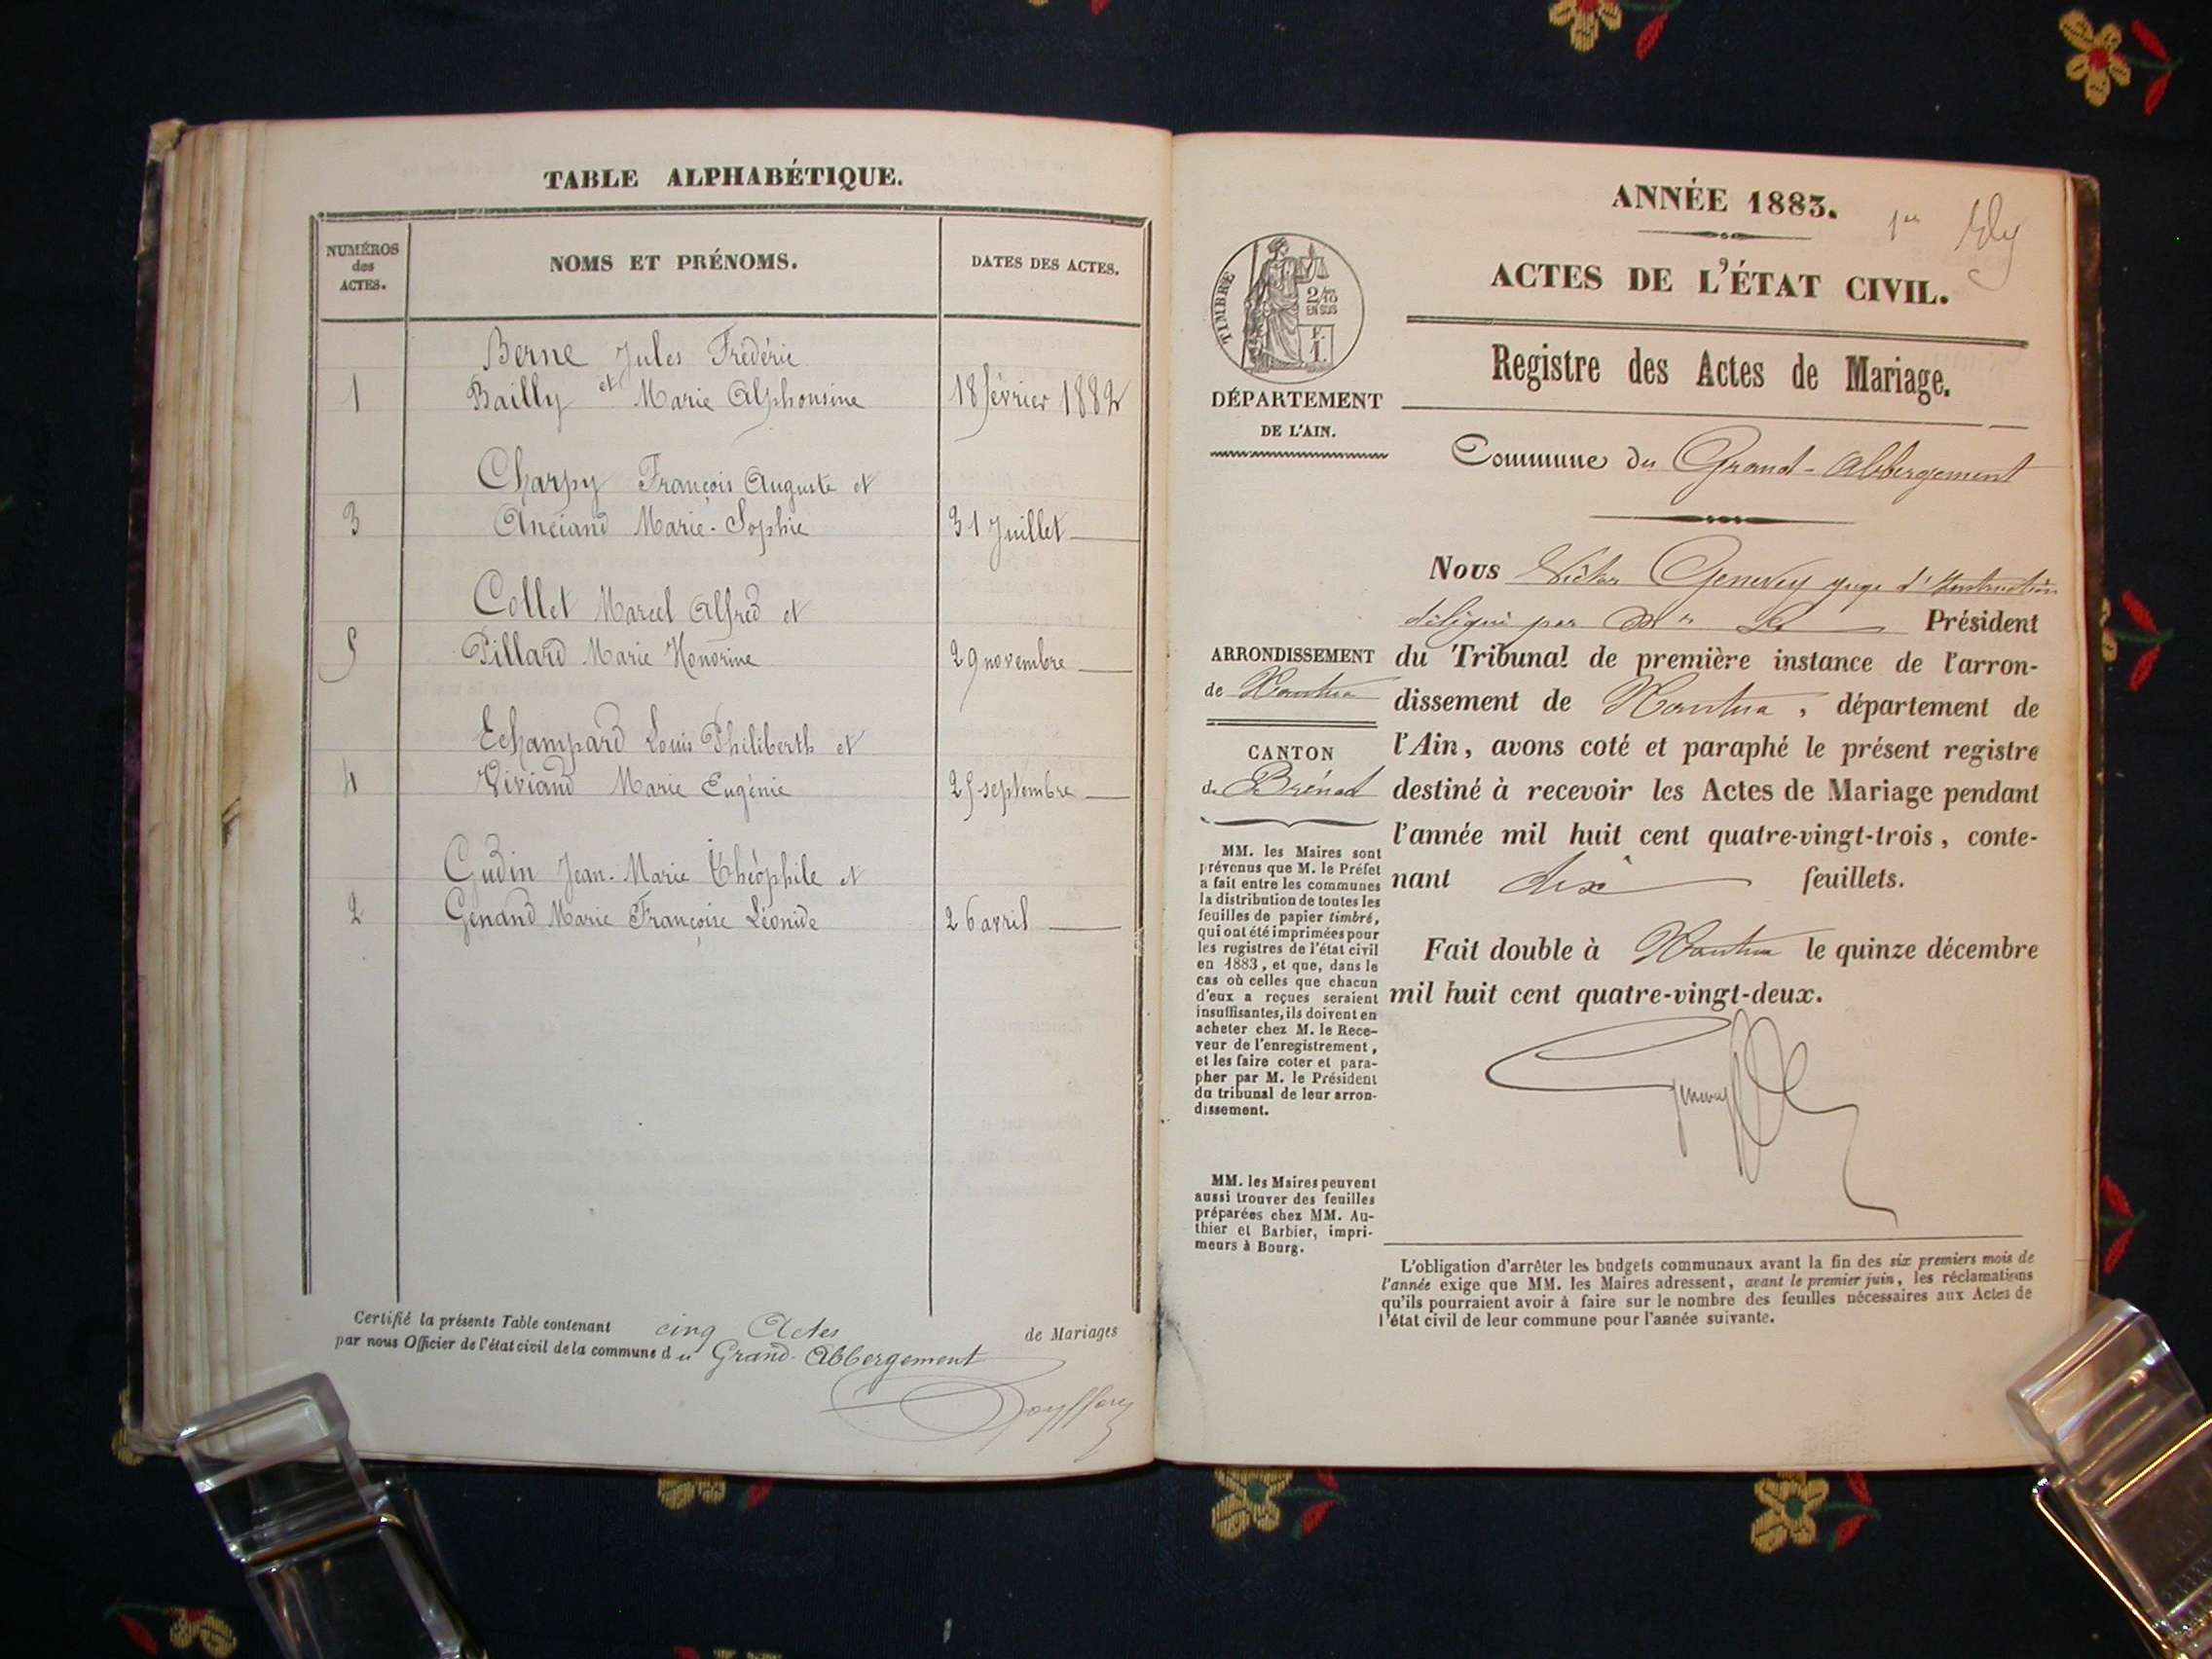 TABLE ALPHABÉTIQUE.
NUMÉROS
des
ACTES.
NOMS ET PRÉNOMS.
DATES DES ACTES.
Berne Jules Frédéric
1 et Bailly Marie Alphonsine 18 février 1882
Charpy François Auguste et
3 Anciand Marie-Sophie 31 Juillet
Collet Marcel Alfred et
5 Pillard Marie Honorine 29 novembre
Echampard Louis Philiberth et
4 Viviand Marie Eugénie 25 septembre
Gudin Jean-Marie Théophile et
2 Genand Marie Françoise Léonide 26 avril
Certifié la présente Table contenant cinq Actes de Mariages
par nous Officier de l'état civil de la commune du Grand-Abbergement
ANNÉE 1883.
1er
ACTES DE L'ÉTAT CIVIL.
TIMBRE
2/10
EN SUS
F.
1.
Registre des Actes de Mariage.
DÉPARTEMENT
DE L'AIN.
Commune du Grand-Abbergement
Nous Victor Genevey juge d'Instruction
délégué par Mr Le Président
du Tribunal de première instance de l'arron-
dissement de Nantua, département de
l'Ain, avons coté et paraphé le présent registre
destiné à recevoir les Actes de Mariage pendant
l'année mil huit cent quatre-vingt-trois, conte-
nant dix feuillets.
Fait double à Nantua le quinze décembre
mil huit cent quatre-vingt-deux.
ARRONDISSEMENT
de Nantua
CANTON
de Brénod
MM. les Maires sont
prévenus que M. le Préfet
a fait entre les communes
la distribution de toutes les
feuilles de papier timbré,
qui ont été imprimées pour
les registres de l'état civil
en 1883, et que, dans le
cas où celles que chacun
d'eux a reçues seraient
insuffisantes, ils doivent en
acheter chez M. le Rece-
veur de l'enregistrement,
et les faire coter et para-
pher par M. le Président
du tribunal de leur arron-
dissement.
MM. les Maires peuvent
aussi trouver des feuilles
préparées chez MM. Au-
thier et Barbier, impri-
meurs à Bourg.
L'obligation d'arrêter les budgets communaux avant la fin des six premiers mois de
l'année exige que MM. les Maires adressent, avant le premier juin, les réclamations
qu'ils pourraient avoir à faire sur le nombre des feuilles nécessaires aux Actes de
l'état civil de leur commune pour l'année suivante.